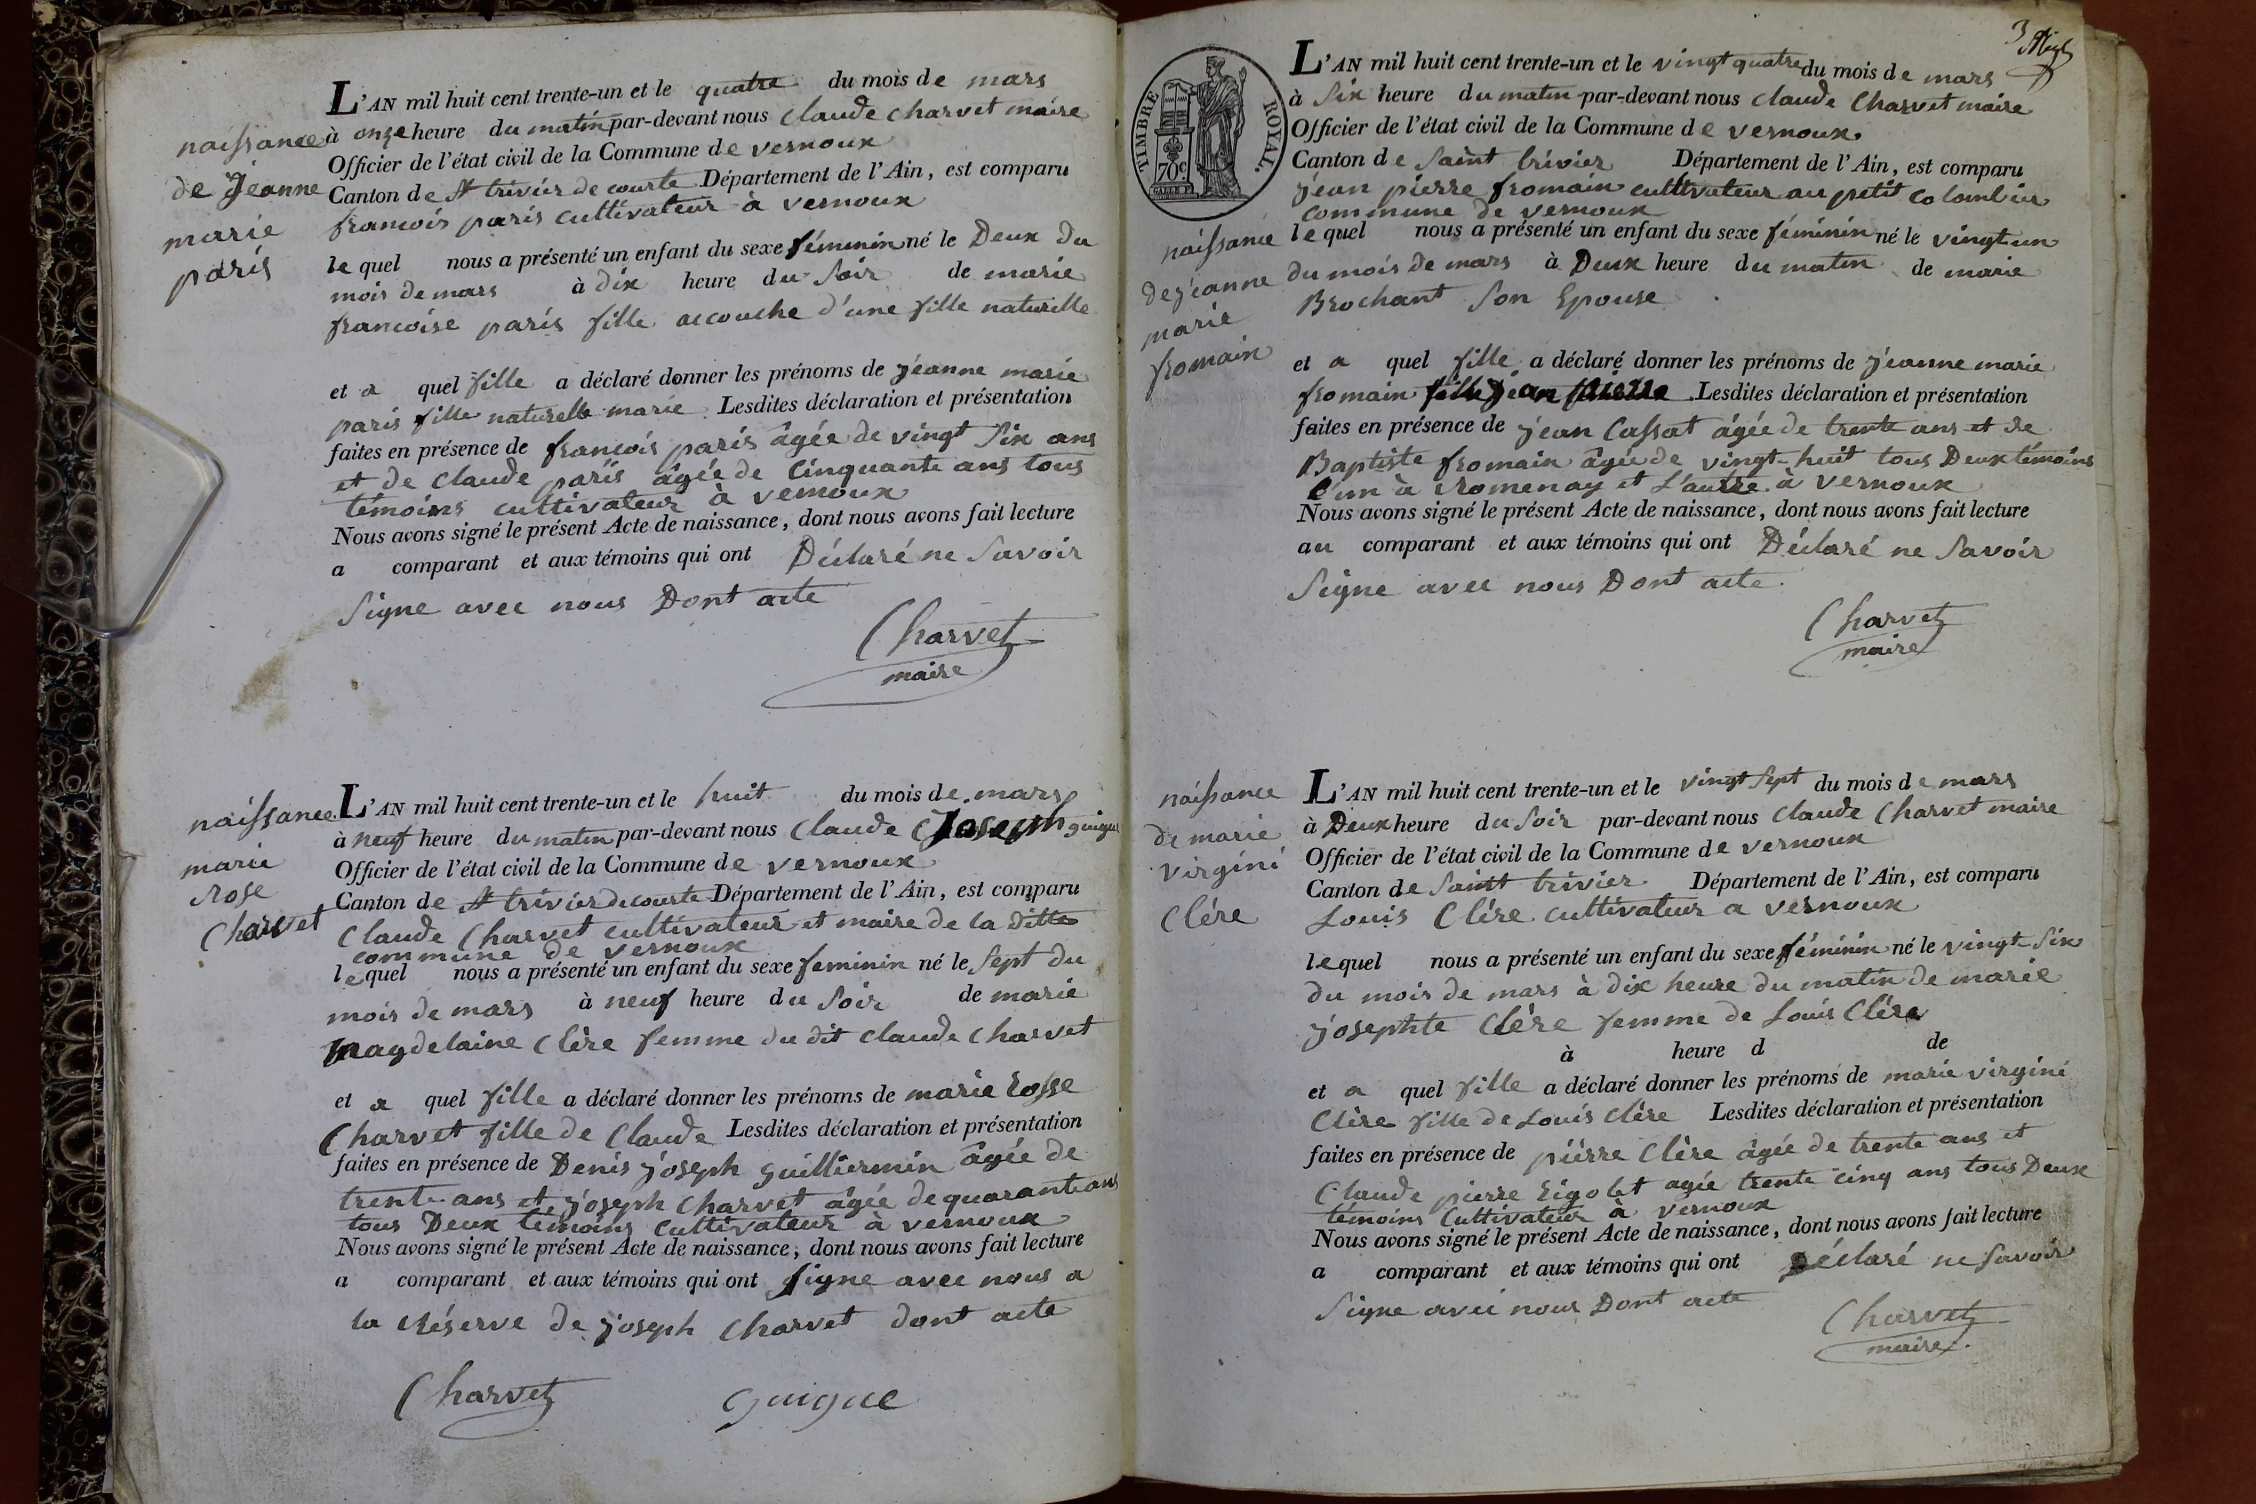 naissance
de jéanne
marie
paris
L'AN mil huit cent trente-un et le quatre du mois de mars
à onze heure du matin par-devant nous Claude Charvet maire
Officier de l'état civil de la Commune de vernoux
Canton de St trivier de courte Département de l'Ain, est comparu
francois paris cultivateur à vernoux
lequel nous a présenté un enfant du sexe féminin né le Deux du
mois de mars à dix heure du Soir de marie
francoise paris fille accouche d'une fille naturelle
et a quel fille a déclaré donner les prénoms de jéanne marie
paris fille naturelle marie Lesdites déclaration et présentation
faites en présence de francois paris âgée de vingt Six ans
et de Claude paris âgée de Cinquante ans tous
témoins cultivateur à vernoux
Nous avons signé le présent Acte de naissance, dont nous avons fait lecture
a comparant et aux témoins qui ont Déclaré ne Savoir
Signe avec nous Dont acte
Charvet
maire
naissance
marie
Rose
Charvet
L'AN mil huit cent trente-un et le huit du mois de mars
à neuf heure du matin par-devant nous Claude Joseph guigue
Officier de l'état civil de la Commune de vernoux
Canton de St trivier de courte Département de l'Ain, est comparu
Claude Charvet cultivateur et maire de la ditte
commune de vernoux
lequel nous a présenté un enfant du sexe feminin né le Sept du
mois de mars à neuf heure du Soir de marie
magdelaine Clère femme du dit Claude Charvet
et a quel fille a déclaré donner les prénoms de marie Rosse
Charvet fille de Claude Lesdites déclaration et présentation
faites en présence de Denis joseph guilliermin âgée de
trente ans et joseph Charvet âgée de quarante ans
tous Deux témoins Cultivateur à vernoux
Nous avons signé le présent Acte de naissance, dont nous avons fait lecture
a comparant et aux témoins qui ont Signe avec nous a
la Réserve de joseph Charvet dont acte
Charvet guigue
3
TIMBRE ROYAL.
70c.
naissance
de jéanne
marie
fromain
L'AN mil huit cent trente-un et le vingt quatre du mois de mars
à Six heure du matin par-devant nous Claude Charvet maire
Officier de l'état civil de la Commune de vernoux
Canton de Saint trivier Département de l'Ain, est comparu
jéan pierre fromain cultivateur au petit Colombier
commune de vernoux
lequel nous a présenté un enfant du sexe féminin né le vingt un
du mois de mars à Deux heure du matin de marie
Brochant Son Epouse
et a quel fille a déclaré donner les prénoms de jéanne marie
fromain fille jéan pierre Lesdites déclaration et présentation
faites en présence de jéan Cassat âgée de trente ans et de
Baptiste fromain âgée de vingt-huit tous Deux témoins
l'un à Romenay et L'autre à vernoux
Nous avons signé le présent Acte de naissance, dont nous avons fait lecture
au comparant et aux témoins qui ont Déclaré ne Savoir
Signe avec nous Dont acte
Charvet
maire
naissance
de marie
virgini
Clére
L'AN mil huit cent trente-un et le vingt Sept du mois de mars
à Deux heure du Soir par-devant nous Claude Charvet maire
Officier de l'état civil de la Commune de vernoux
Canton de Saint trivier Département de l'Ain, est comparu
Louis Clére cultivateur a vernoux
lequel nous a présenté un enfant du sexe féminin né le vingt Six
du mois de mars à dix heure du matin de marie
josephte Clère femme de Louis Clére
à heure d de
et a quel fille a déclaré donner les prénoms de marie virgini
Clère fille de Louis Clère Lesdites déclaration et présentation
faites en présence de piérre Clère âgée de trente ans et
Claude pierre Rigolet agée trente cinq ans tous Deux
témoins Cultivateur à vernoux
Nous avons signé le présent Acte de naissance, dont nous avons fait lecture
a comparant et aux témoins qui ont Déclaré ne Savoir
Signe avec nous Dont acte
Charvet
maire